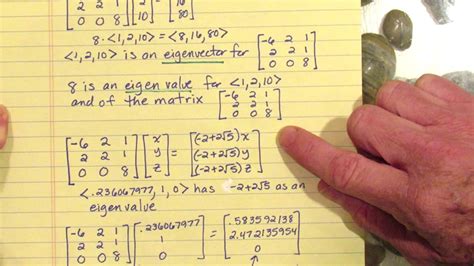 2 2 1 2 = 16
0 0 8 10 80
8·<1,2,10> = <8,16,80>
<1,2,10> is an eigenvector for [-6 2 1
2 2 1
0 0 8]
8 is an eigen value for <1,2,10>
and of the matrix [-6 2 1
2 2 1
0 0 8]
[-6 2 1 [x [(-2+2√5)x
2 2 1 y = (-2+2√5)y
0 0 8] z] (-2+2√5)z]
<.236067977,1,0> has -2+2√5 as an
eigenvalue
[-6 2 1 [.236067977 [.583592138
2 2 1 1 = 2.472135954
0 0 8] 0] 0]